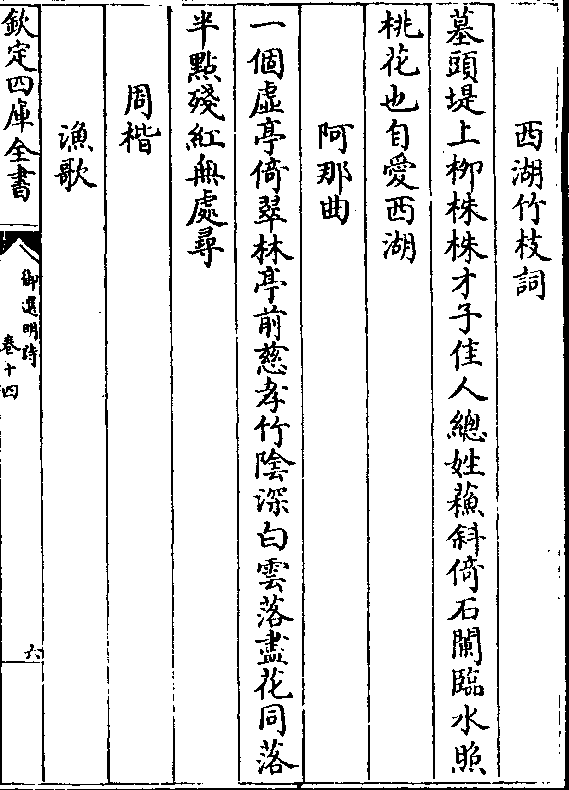 西湖竹枝詞
墓頭堤上柳株株才子佳人總姓蘓斜倚石闌臨水照
桃花也自愛西湖
阿那曲
一個虛亭倚翠林亭前慈孝竹陰深白雲落盡花同落
半點殘紅無處尋
周楷
漁歌
欽定四庫全書
御選明詩
卷十四
六